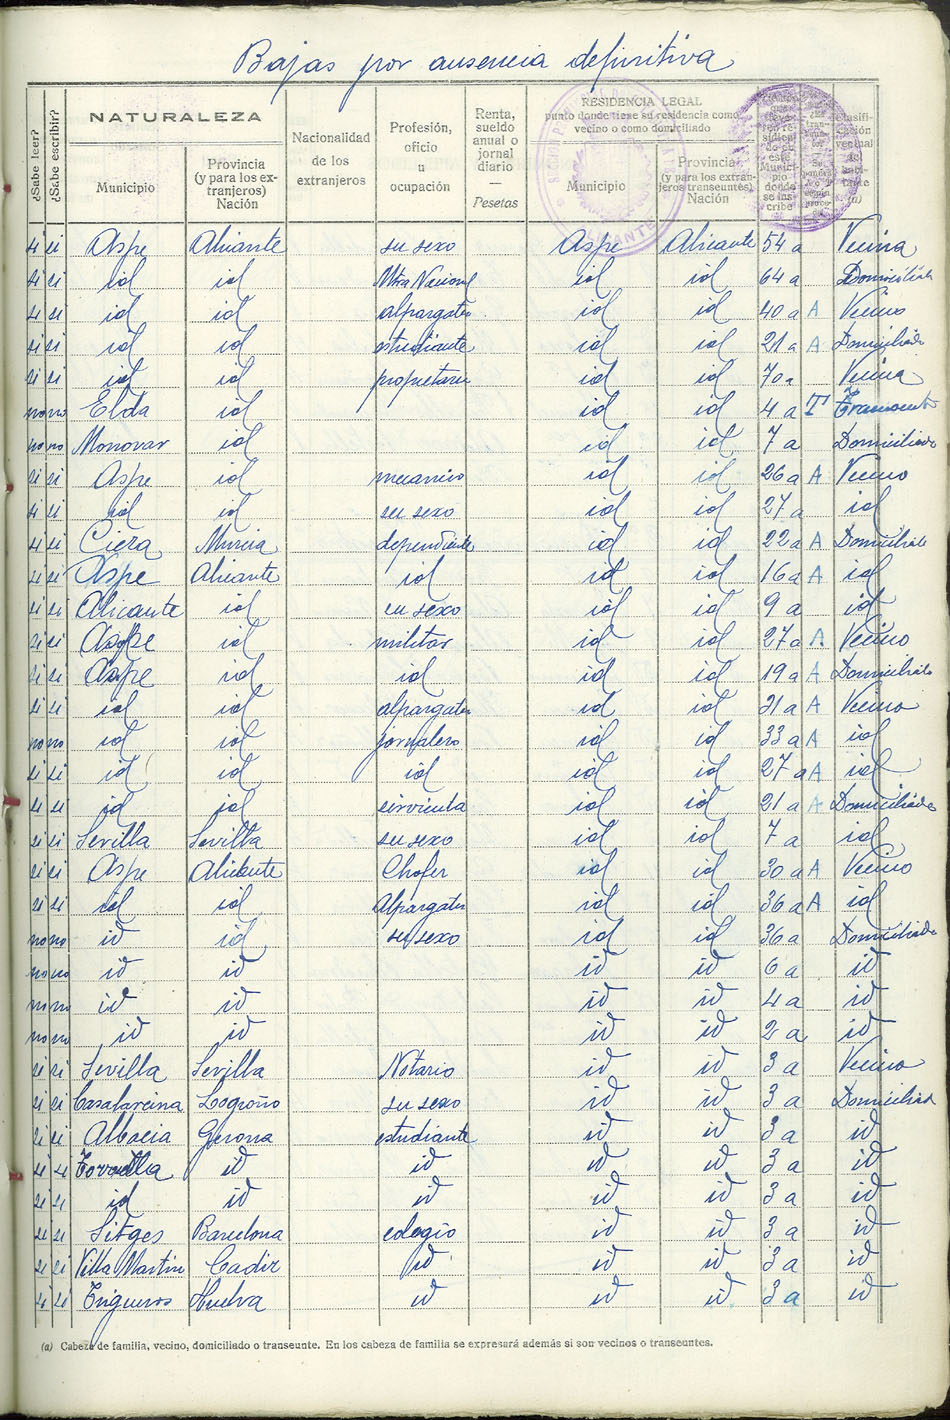 Bajas por ausencia definitiva
¿Sabe leer?
¿Sabe escribir?
NATURALEZA
Municipio
Provincia (y para los extranjeros) Nación
Nacionalidad de los extranjeros
Profesión, oficio u ocupación
Renta, sueldo anual o jornal diario — Pesetas
RESIDENCIA LEGAL
punto donde tiene su residencia como vecino o como domiciliado
Municipio
Provincia (y para los extranjeros transeuntes) Nación
(a)
si si Aspe Alicante su sexo Aspe Alicante 54 a Vecina
si si id id Mtra Nacional id id 64 a Domiciliada
si si id id alpargater id id 40 a A Vecino
si si id id estudiante id id 21 a A Domiciliado
si si id id propietaria id id 70 a Vecina
no no Elda id id id 4 a T Transeunte
no no Monovar id id id 7 a Domiciliado
si si Aspe id mecanico id id 26 a A Vecino
si si id id su sexo id id 27 a id
si si Cieza Murcia dependiente id id 22 a A Domiciliado
si si Aspe Alicante id id id 16 a A id
si si Alicante id su sexo id id 9 a id
si si Aspe id militar id id 27 a A Vecino
si si Aspe id id id id 19 a A Domiciliado
si si id id alpargater id id 31 a A Vecino
no no id id jornalero id id 33 a A id
si si id id id id id 27 a A id
si si id id sirvienta id id 21 a A Domiciliada
si si Sevilla Sevilla su sexo id id 7 a id
si si Aspe Alicante Chofer id id 30 a A Vecino
si si id id Alpargater id id 36 a A id
no no id id su sexo id id 36 a Domiciliada
no no id id id id 6 a id
no no id id id id 4 a id
no no id id id id 2 a id
si si Sevilla Sevilla Notario id id 3 a Vecino
si si Casalareina Logroño su sexo id id 3 a Domiciliad
si si Gerona estudiante id id 3 a id
si si id id id id 3 a id
si si id id id id 3 a id
si si Sitges Barcelona colegio id id 3 a id
si si Villa Martin Cadiz id id id 3 a id
si si Trigueros Huelva id id id 3 a id
(a) Cabeza de familia, vecino, domiciliado o transeunte. En los cabeza de familia se expresará además si son vecinos o transeuntes.